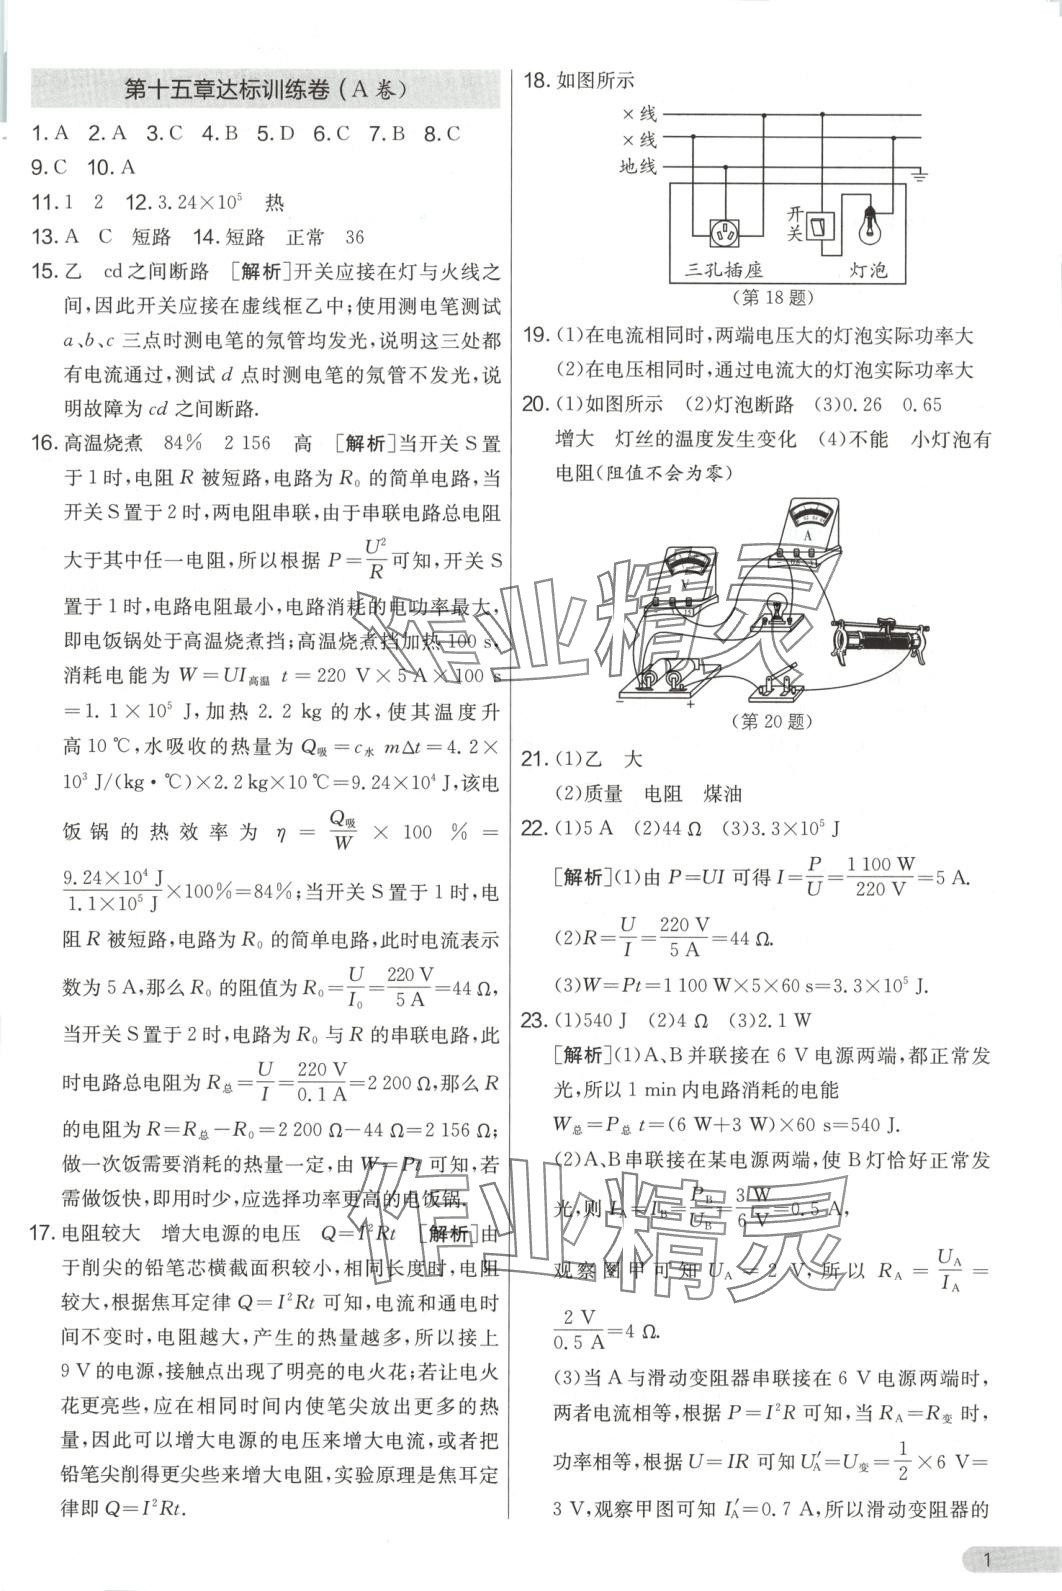 第十五章达标训练卷(A卷)
1. A 2. A 3. C 4. B 5. D 6. C 7. B 8. C
9. C 10. A
11. 1 2 12. 3.24×10⁵ 热
13. A C 短路 14. 短路 正常 36
15. 乙 cd之间断路 [解析]开关应接在灯与火线之
间,因此开关应接在虚线框乙中;使用测电笔测试
a、b、c 三点时测电笔的氖管均发光,说明这三处都
有电流通过,测试 d 点时测电笔的氖管不发光,说
明故障为 cd 之间断路.
16. 高温烧煮 84% 2 156 高 [解析]当开关S置
于1时,电阻R被短路,电路为R₀的简单电路,当
开关S置于2时,两电阻串联,由于串联电路总电阻
大于其中任一电阻,所以根据 P=U²/R可知,开关S
置于1时,电路电阻最小,电路消耗的电功率最大,
即电饭锅处于高温烧煮挡;高温烧煮挡加热100 s,
消耗电能为 W=UI高温 t=220 V×5 A×100 s
=1.1×10⁵ J,加热 2.2 kg 的水,使其温度升
高10 ℃,水吸收的热量为Q吸=c水 mΔt=4.2×
10³ J/(kg·℃)×2.2 kg×10 ℃=9.24×10⁴ J,该电
饭锅的热效率为 η=Q吸/W×100%=
9.24×10⁴ J/1.1×10⁵ J×100%=84%;当开关S置于1时,电
阻R被短路,电路为R₀的简单电路,此时电流表示
数为5 A,那么R₀的阻值为R₀=U/I₀=220 V/5 A=44 Ω,
当开关S置于2时,电路为R₀与R的串联电路,此
时电路总电阻为R总=U/I=220 V/0.1 A=2 200 Ω,那么R
的电阻为R=R总-R₀=2 200 Ω-44 Ω=2 156 Ω;
做一次饭需要消耗的热量一定,由 W=Pt 可知,若
需做饭快,即用时少,应选择功率更高的电饭锅.
17. 电阻较大 增大电源的电压 Q=I²Rt [解析]由
于削尖的铅笔芯横截面积较小,相同长度时,电阻
较大,根据焦耳定律 Q=I²Rt 可知,电流和通电时
间不变时,电阻越大,产生的热量越多,所以接上
9 V的电源,接触点出现了明亮的电火花;若让电火
花更亮些,应在相同时间内使笔尖放出更多的热
量,因此可以增大电源的电压来增大电流,或者把
铅笔尖削得更尖些来增大电阻,实验原理是焦耳定
律即 Q=I²Rt.
18. 如图所示
×线
×线
地线
开关
三孔插座
灯泡
(第18题)
19. (1)在电流相同时,两端电压大的灯泡实际功率大
(2)在电压相同时,通过电流大的灯泡实际功率大
20. (1)如图所示 (2)灯泡断路 (3)0.26 0.65
增大 灯丝的温度发生变化 (4)不能 小灯泡有
电阻(阻值不会为零)
A
V
-
+
(第20题)
21. (1)乙 大
(2)质量 电阻 煤油
22. (1)5 A (2)44 Ω (3)3.3×10⁵ J
[解析](1)由 P=UI 可得 I=P/U=1 100 W/220 V=5 A.
(2)R=U/I=220 V/5 A=44 Ω.
(3)W=Pt=1 100 W×5×60 s=3.3×10⁵ J.
23. (1)540 J (2)4 Ω (3)2.1 W
[解析](1)A、B并联接在6 V电源两端,都正常发
光,所以1 min内电路消耗的电能
W总=P总 t=(6 W+3 W)×60 s=540 J.
(2)A、B串联接在某电源两端,使B灯恰好正常发
光,则 I_A=I_B=P_B/U_B=3 W/6 V=0.5 A,
观察图甲可知 U_A=2 V,所以 R_A=U_A/I_A=
2 V/0.5 A=4 Ω.
(3)当A与滑动变阻器串联接在6 V电源两端时,
两者电流相等,根据 P=I²R 可知,当 R_A=R变 时,
功率相等,根据 U=IR 可知 U′_A=U变=1/2×6 V=
3 V,观察甲图可知 I′_A=0.7 A,所以滑动变阻器的
作业精灵
作业精灵
1